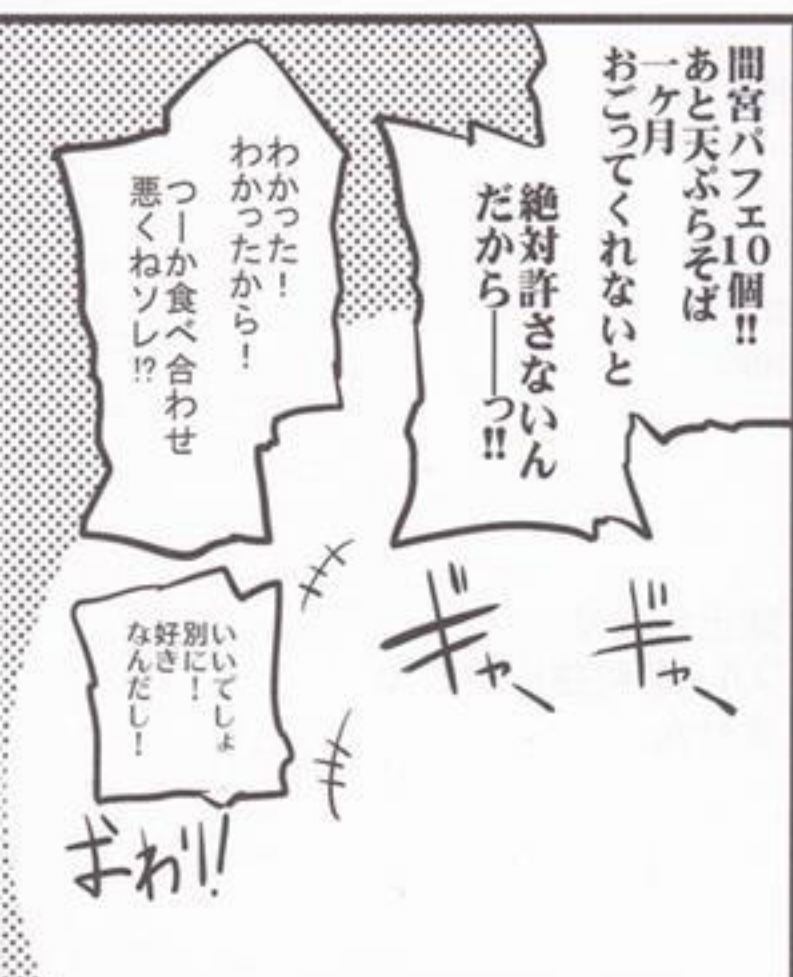 間宮パフェ10個!!
あと天ぷらそば
一ヶ月
おごってくれないと
絶対許さないん
だから――っ!!
わかった!
わかったから!
つーか食べ合わせ
悪くねソレ!?
ギャー
ギャー
いいでしょ
別に!
好き
なんだし!
おわり!